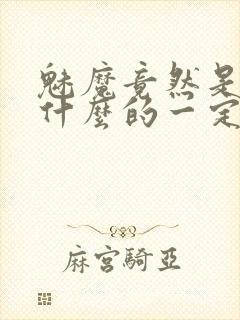 魅魔竟然是
什麼的一定
麻宮騎亞